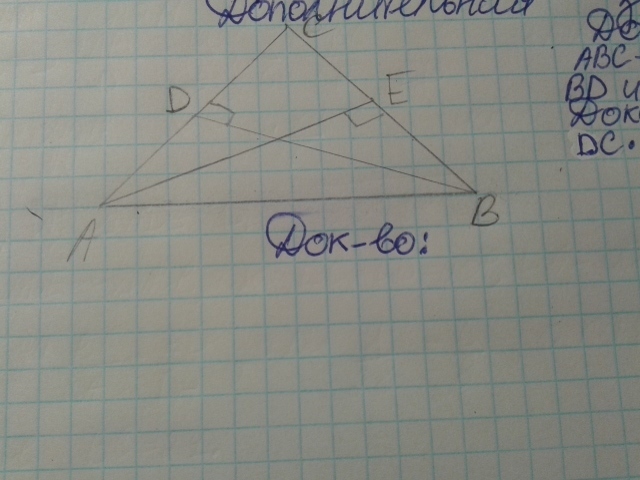 Дополнительная
C
D
E
A
B
Док-во:
ABC-
BD и
Док
DC·